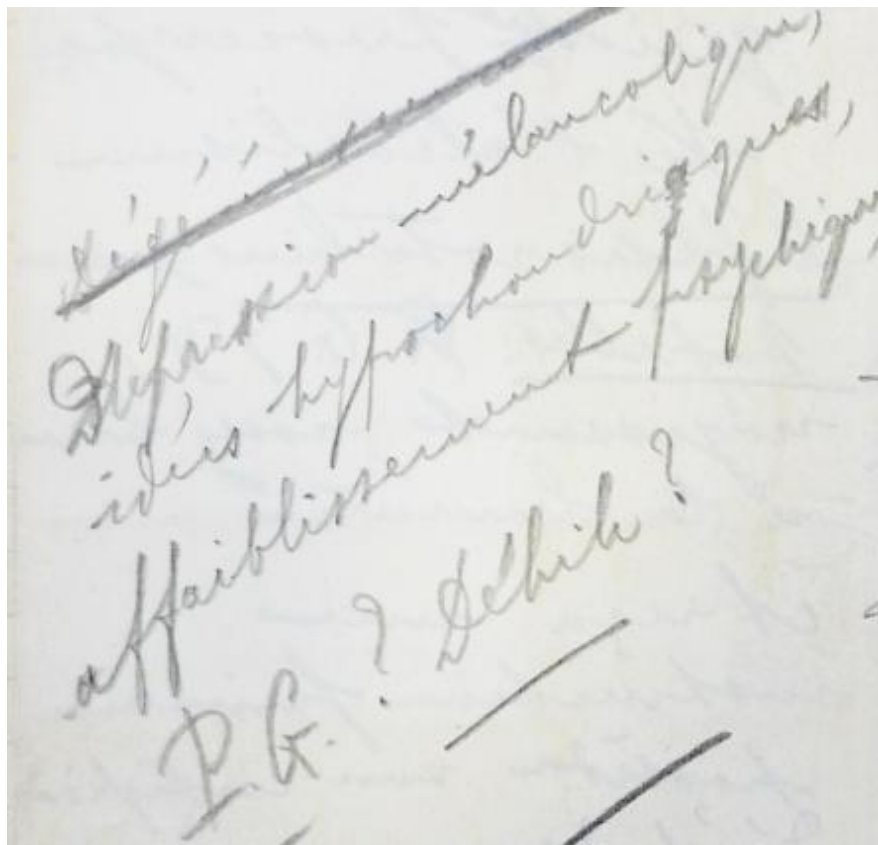 Dépression mélancolique,
idées hypochondriaques,
affaiblissement psychique,
P.G. ? Débile ?